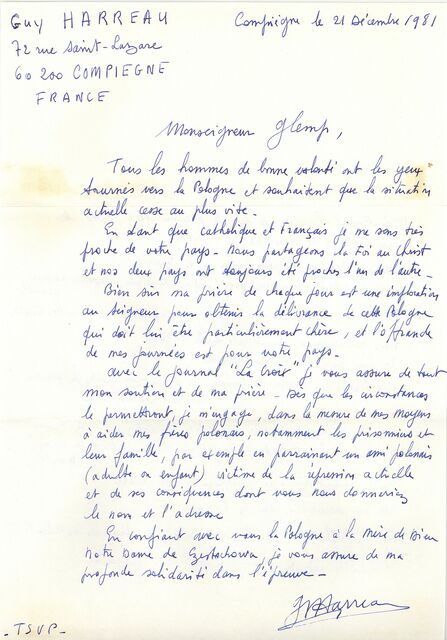 Guy HARREAU
Compiègne le 21 Décembre 1981
72 rue Saint-Lazare
60 200 COMPIEGNE
FRANCE
Monseigneur Glemp,
Tous les hommes de bonne volonté ont les yeux
tournés vers la Pologne et souhaitent que la situation
actuelle cesse au plus vite.
En tant que catholique et Français je me sens très
proche de votre pays. Nous partageons la Foi au Christ
et nos deux pays ont toujours été proches l'un de l'autre.
Bien sûr ma prière de chaque jour est une imploration
au Seigneur pour obtenir la délivrance de cette Pologne
qui doit lui être particulièrement chère, et l'offrande
de mes journées est pour votre pays.
Avec le journal "La Croix" je vous assure de tout
mon soutien et de ma prière. Dès que les circonstances
le permettront, je m'engage, dans la mesure de mes moyens
à aider mes frères polonais, notamment les prisonniers et
leur famille, par exemple en parrainant un ami polonais
(adulte ou enfant) victime de la répression actuelle
et de ses conséquences dont vous nous donneriez
le nom et l'adresse
En confiant avec vous la Pologne à la Mère de Dieu
Notre Dame de Czestochowa, je vous assure de ma
profonde solidarité dans l'épreuve.
GHarreau
- TSVP -